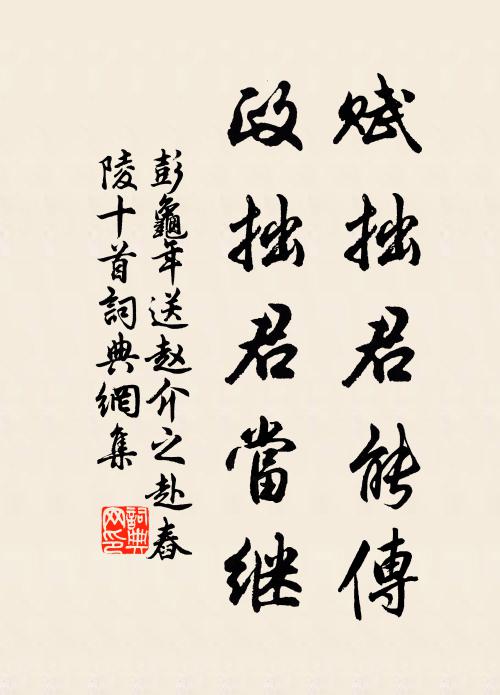 賦拙君能傳
政拙君當继
彭龜年送赵介之赴舂
陵十首詞典網集
詞典
网印